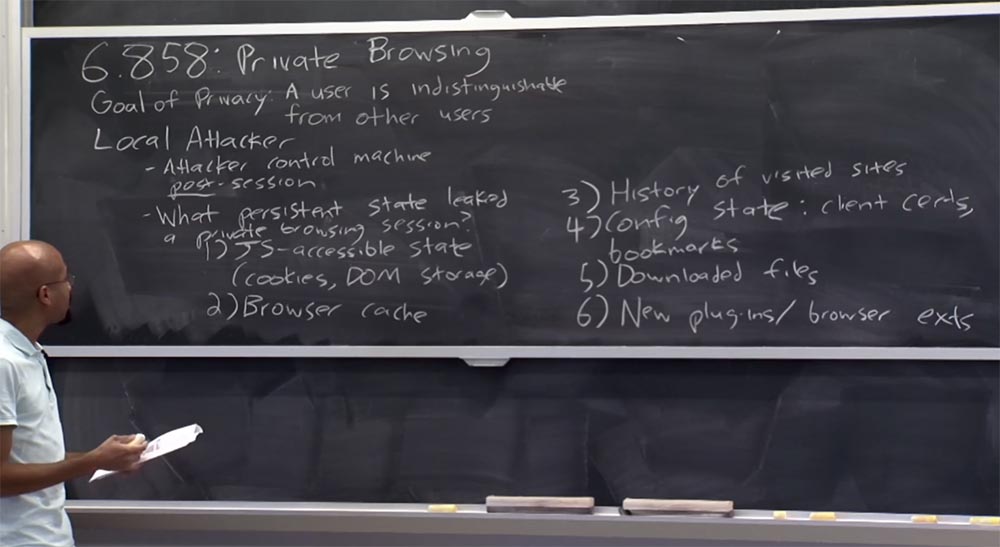 6.858: Private Browsing
Goal of Privacy: A user is indistinguishable
from other users
Local Attacker
- Attacker control machine
post-session
- What persistent state leaked
a private browsing session?
1) JS-accessible state
(cookies, DOM storage)
2) Browser cache
3) History of visited sites
4) Config state: client certs,
bookmarks
5) Downloaded files
6) New plugins/browser exts